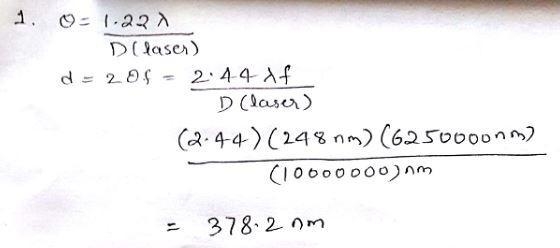 1. θ = 1.22 λ / D(laser)
d = 2θf = 2.44 λf / D(laser)
(2.44)(248 nm)(6250000nm) / (10000000)nm
= 378.2 nm